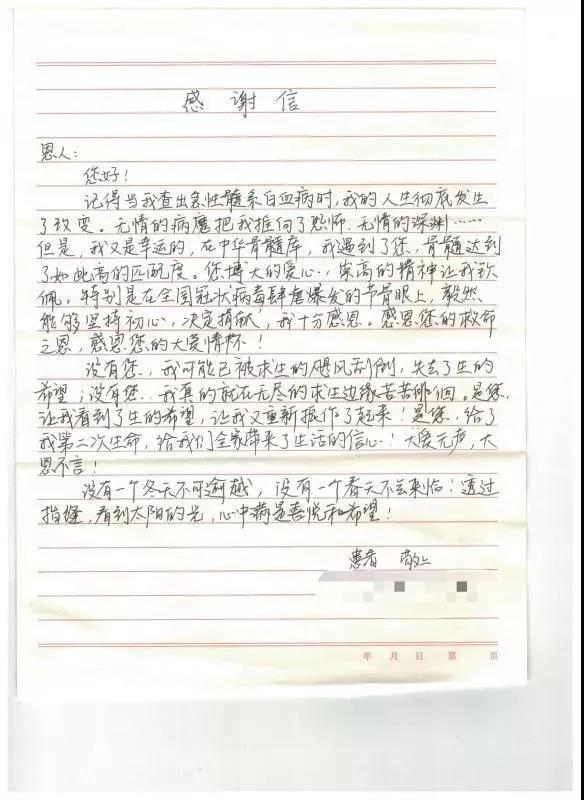 感谢信
恩人：
您好！
记得当我查出急性髓系白血病时，我的人生彻底发生
了改变。无情的病魔把我推向了恐怖、无情的深渊……
但是，我又是幸运的，在中华骨髓库，我遇到了您，骨髓达到
了如此高的匹配度。您博大的爱心，崇高的精神让我钦
佩。特别是在全国冠状病毒肆虐爆发的节骨眼上，毅然
能够坚持初心，决定捐献，我十分感恩。感恩您的救命
之恩，感恩您的大爱情怀！
没有您，我可能已被求生的飓风刮倒，失去了生的
希望；没有您，我真的就在无尽的求生边缘苦苦徘徊。是您，
让我看到了生的希望，让我又重新振作了起来！是您，给了
我第二次生命，给我们全家带来了生活的信心！大爱无声，大
恩不言！
没有一个冬天不可逾越，没有一个春天不会来临；透过
指缝，看到太阳的光，心中满是喜悦和希望！
患者 敬上
年 月 日 第 页